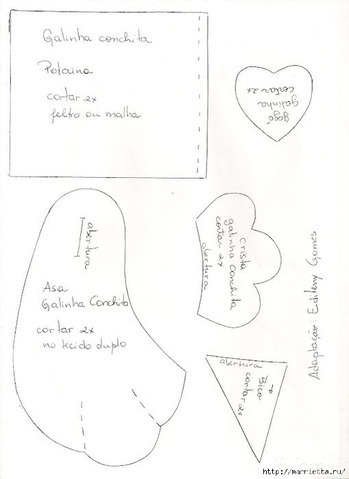 Galinha conchita
Polaina
cortar 2x
feltro ou malha
gogó
galinha
cortar 2x
abertura
Asa
Galinha Conchita
cortar 2x
no tecido duplo
crista
galinha conchita
cortar 2x
abertura
abertura
Bico
cortar 2x
Adaptação Edileny Gomes
http://marrietta.ru/